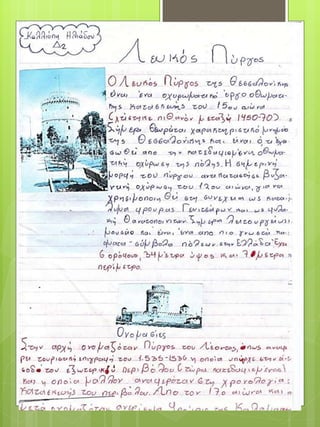 Καλλιόπη Ηλιάδου
Δ2
Λευκός Πύργος
Ο Λευκός Πύργος της Θεσσαλονίκης
είναι ένα οχυρωματικό έργο οθωμανι-
κής κατασκευής του 15ου αιώνα
(χτίστηκε πιθανόν μεταξύ 1450-70).
Σήμερα θεωρείται χαρακτηριστικό μνημείο
της Θεσσαλονίκης και είναι ό,τι έχει
σωθεί από την κατεδαφισμένη οθωμα-
νική οχύρωση της πόλης. Η σημερινή
μορφή του πύργου αντικατέστησε βυζα-
ντινή οχύρωση του 12ου αιώνα, για να
χρησιμοποιηθεί στη συνέχεια ως κατά-
λυμα φρουράς Γενιτσάρων και ως φυλα-
κή θανατοποινιτών. Σήμερα λειτουργεί ως
μουσείο και είναι ένα από πιο γνωστά κτί-
σματα-σύμβολα πόλεων στην Ελλάδα. Έχει
6 ορόφους, 34 μέτρα ύψος και 70 μέτρα
περίμετρο.
Ονομασίες
Στην αρχή ονομαζόταν Πύργος του Λέοντος, όπως αναφέ-
ρει τουρκική επιγραφή του 1535-1536 η οποία υπήρχε στην εί-
σοδο του εξωτερικού περιβόλου (τώρα κατεδαφισμένος)
και η οποία μάλλον αναφερόταν στη χρονολογία
κατασκευής του περιβόλου. Από τον 17ο αιώνα και
μετά